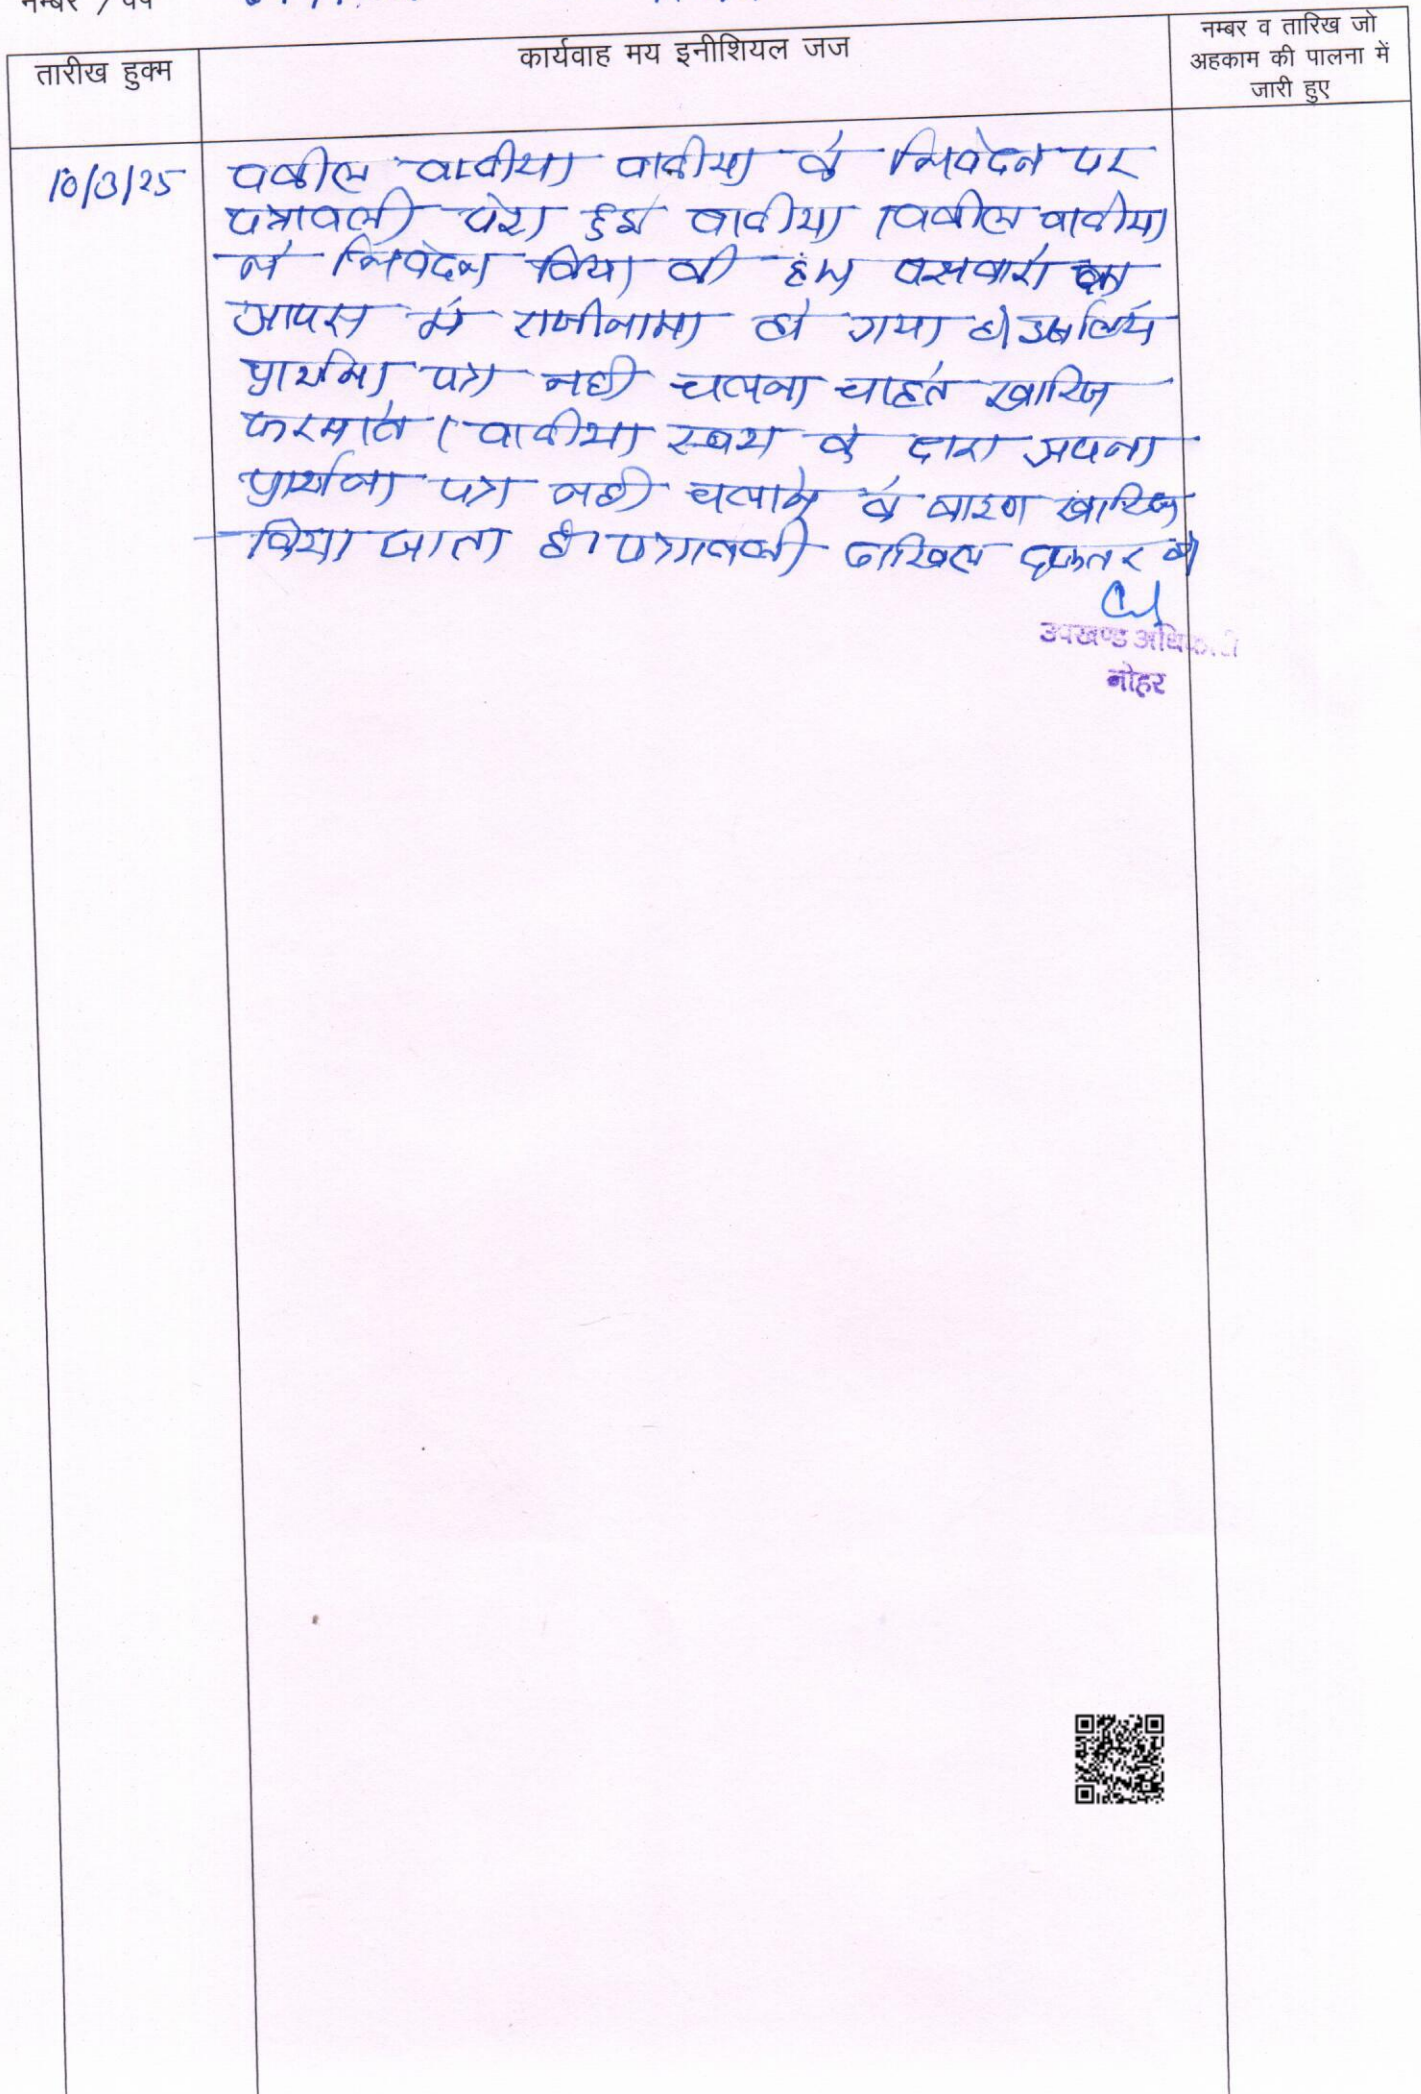 नम्बर / वर्ष
तारीख हुक्म
कार्यवाह मय इनीशियल जज
नम्बर व तारिख जो
अहकाम की पालना में
जारी हुए
10/3/25
वकील वादीया वादीया के निवेदन पर
पत्रावली पेश हुई वादीया । वकील वादीया
ने निवेदन किया की हम पक्षकारो का
आपस में राजीनामा हो गया है। इसलिये
प्रार्थना पत्र नही चलाना चाहते खारिज
फरमावे । वादीया स्वयं के द्वारा अपना
प्रार्थना पत्र नही चलाने के कारण खारिज
किया जाता है। पत्रावली दाखिल दफ्तर हो
उपखण्ड अधिकारी
नोहर